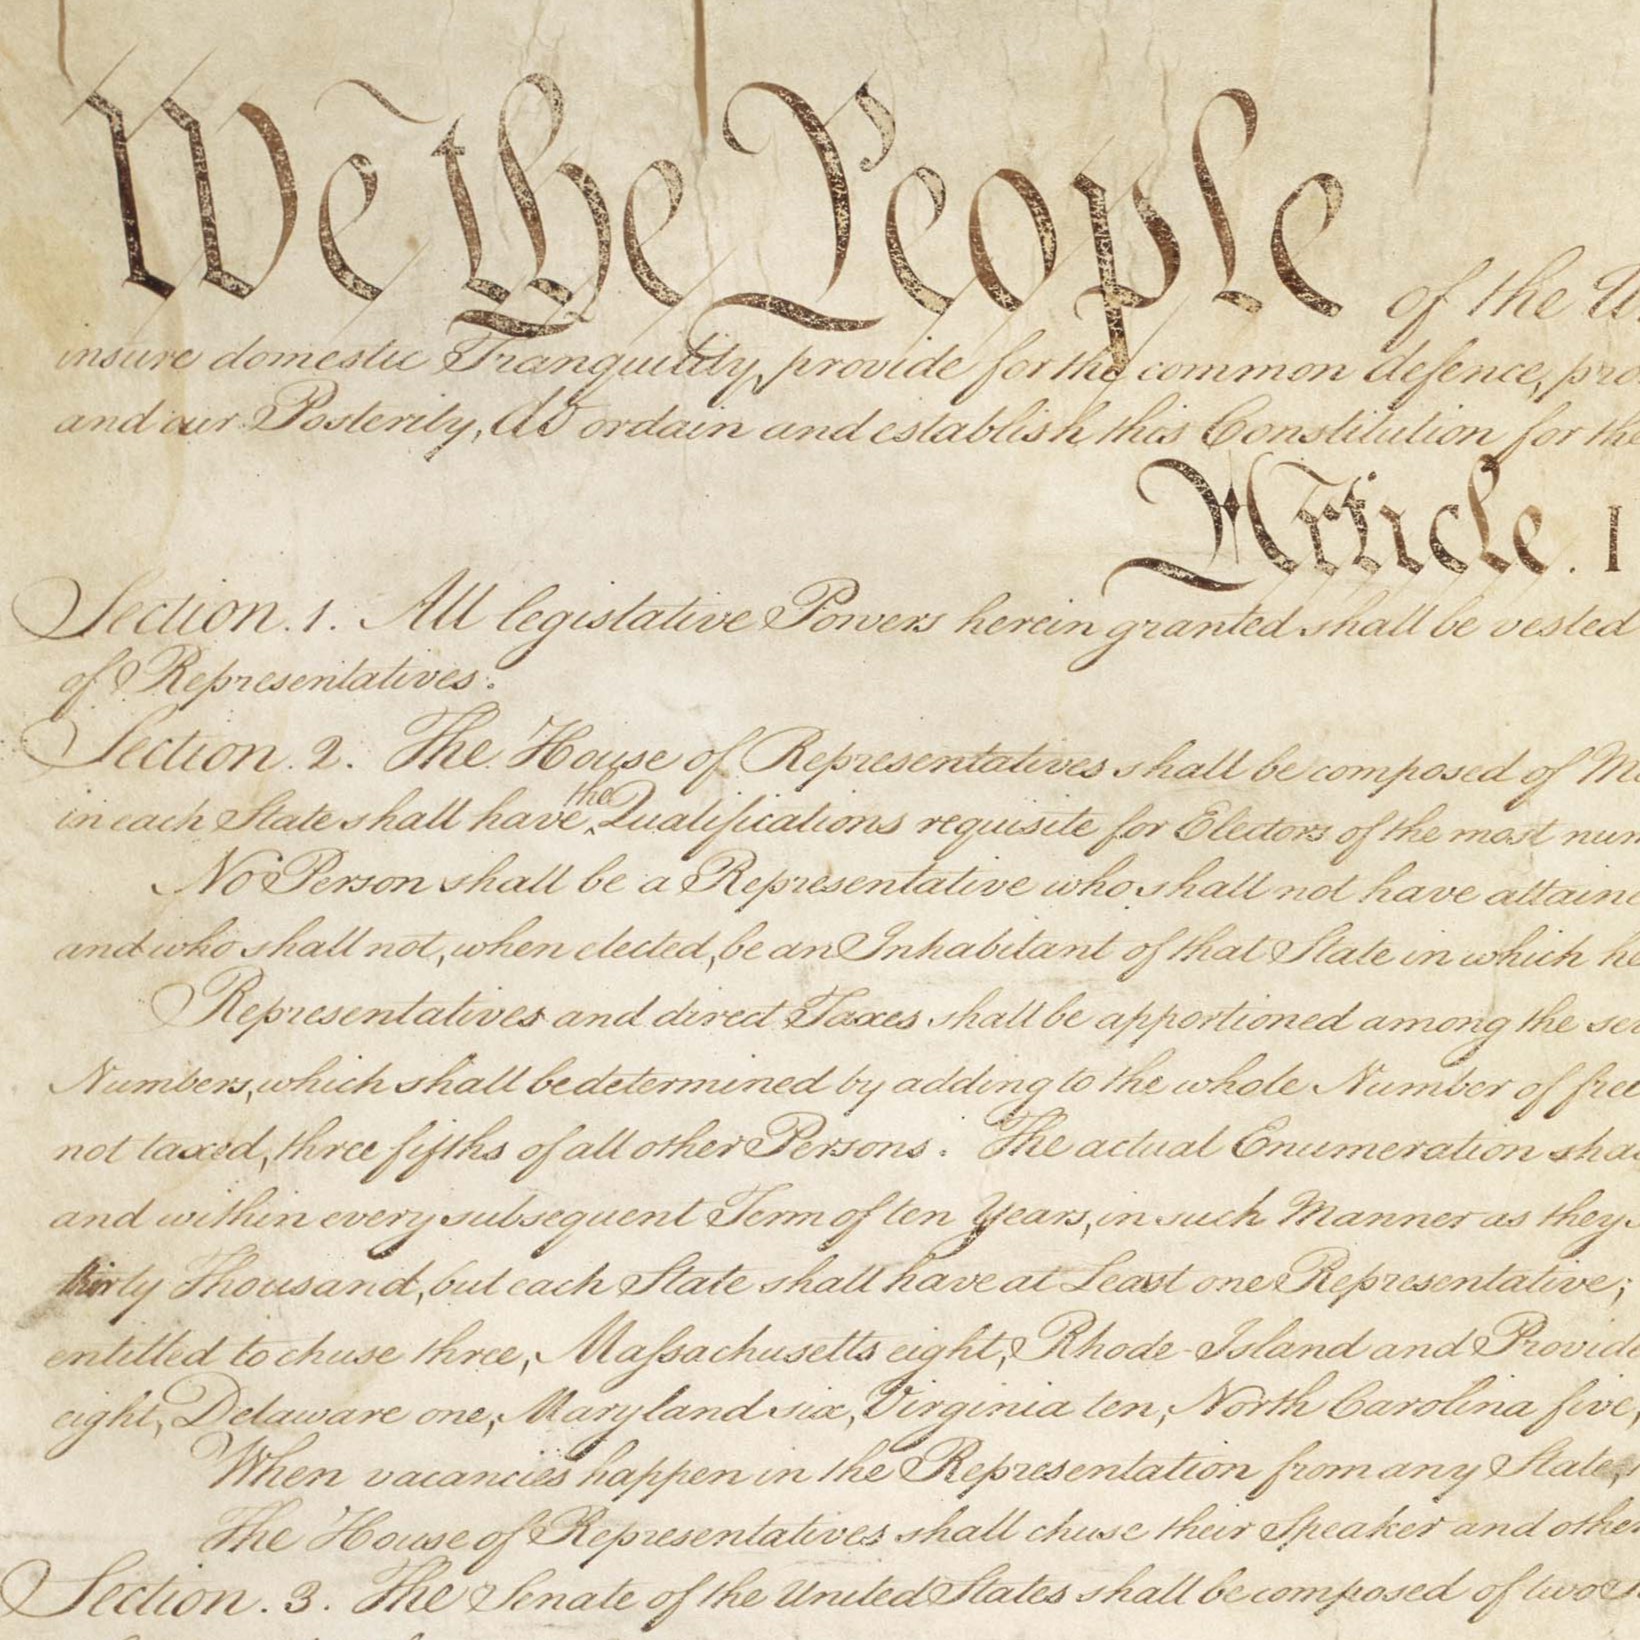 We the People of the
insure domestic Tranquility, provide for the common defence, pro
and our Posterity, do ordain and establish this Constitution for the
Article. I
Section. 1. All legislative Powers herein granted shall be vested
of Representatives.
Section. 2. The House of Representatives shall be composed of
the
in each State shall have Qualifications requisite for Electors of the most num
No Person shall be a Representative who shall not have attaine
and who shall not, when elected, be an Inhabitant of that State in which he
Representatives and direct Taxes shall be apportioned among the sev
Numbers, which shall be determined by adding to the whole Number of free
not taxed, three fifths of all other Persons. The actual Enumeration sha
and within every subsequent Term of ten Years, in such Manner as they
thirty Thousand, but each State shall have at Least one Representative;
entitled to chuse three, Massachusetts eight, Rhode-Island and Provide
eight, Delaware one, Maryland six, Virginia ten, North Carolina five,
When vacancies happen in the Representation from any State,
The House of Representatives shall chuse their Speaker and other
Section. 3. The Senate of the United States shall be composed of two